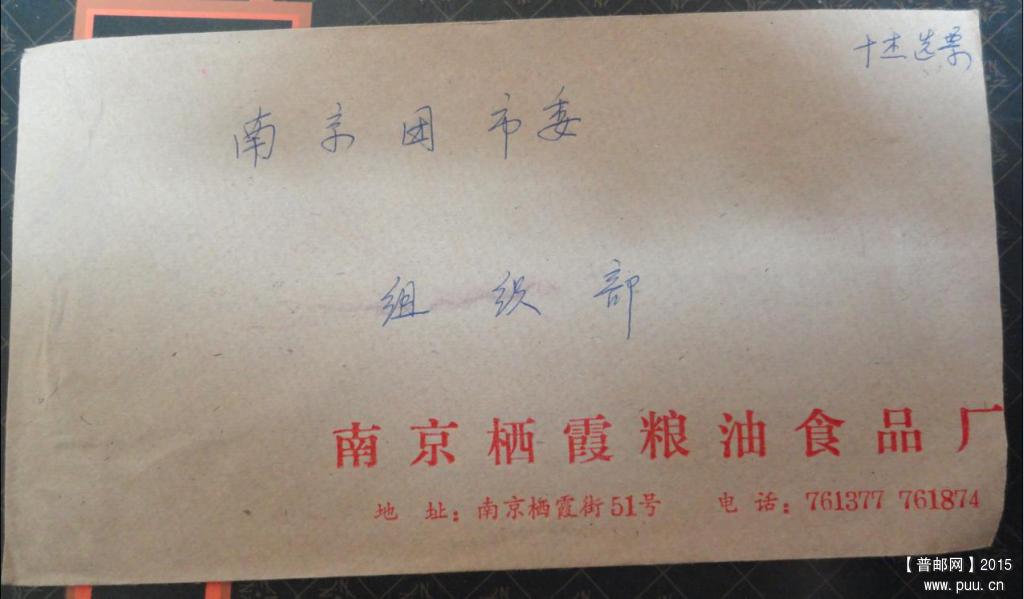 十杰选票
南京团市委
组织部
南京栖霞粮油食品厂
地 址：南京栖霞街51号 电 话：761377 761874
【普邮网】2015
www.puu.cn